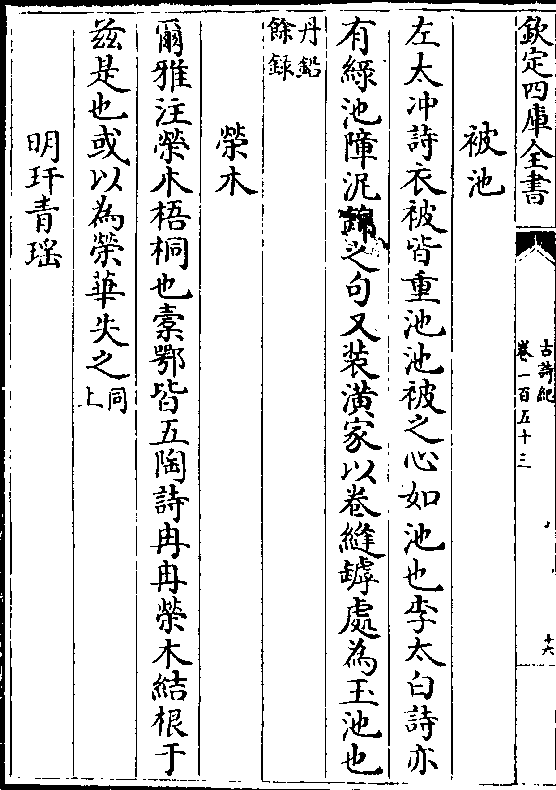 欽定四庫全書
古詩紀
卷一百五十三
十六
被池
左太冲詩衣被皆重池池被之心如池也李太白詩亦
有綠池障泥錦之句又装潢家以卷縫罅處為玉池也
丹鉛
餘錄
榮木
爾雅注榮木梧桐也橐鄂皆五陶詩冉冉榮木結根于
兹是也或以為榮華失之同
上
明玕青瑶